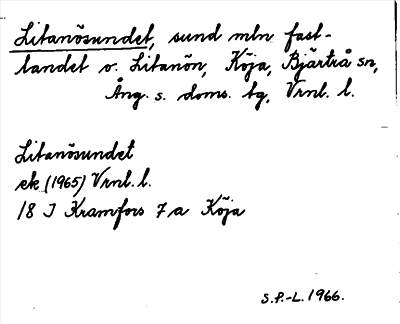 Litanösundet, sund mln fast-
landet o. Litanön, Köja, Bjärtrå sn,
Ång. s. doms. tg, Vrnl. l.
Litanösundet
ek (1965) Vrnl. l.
18 I Kramfors 7 a Köja
S.P.-L. 1966.